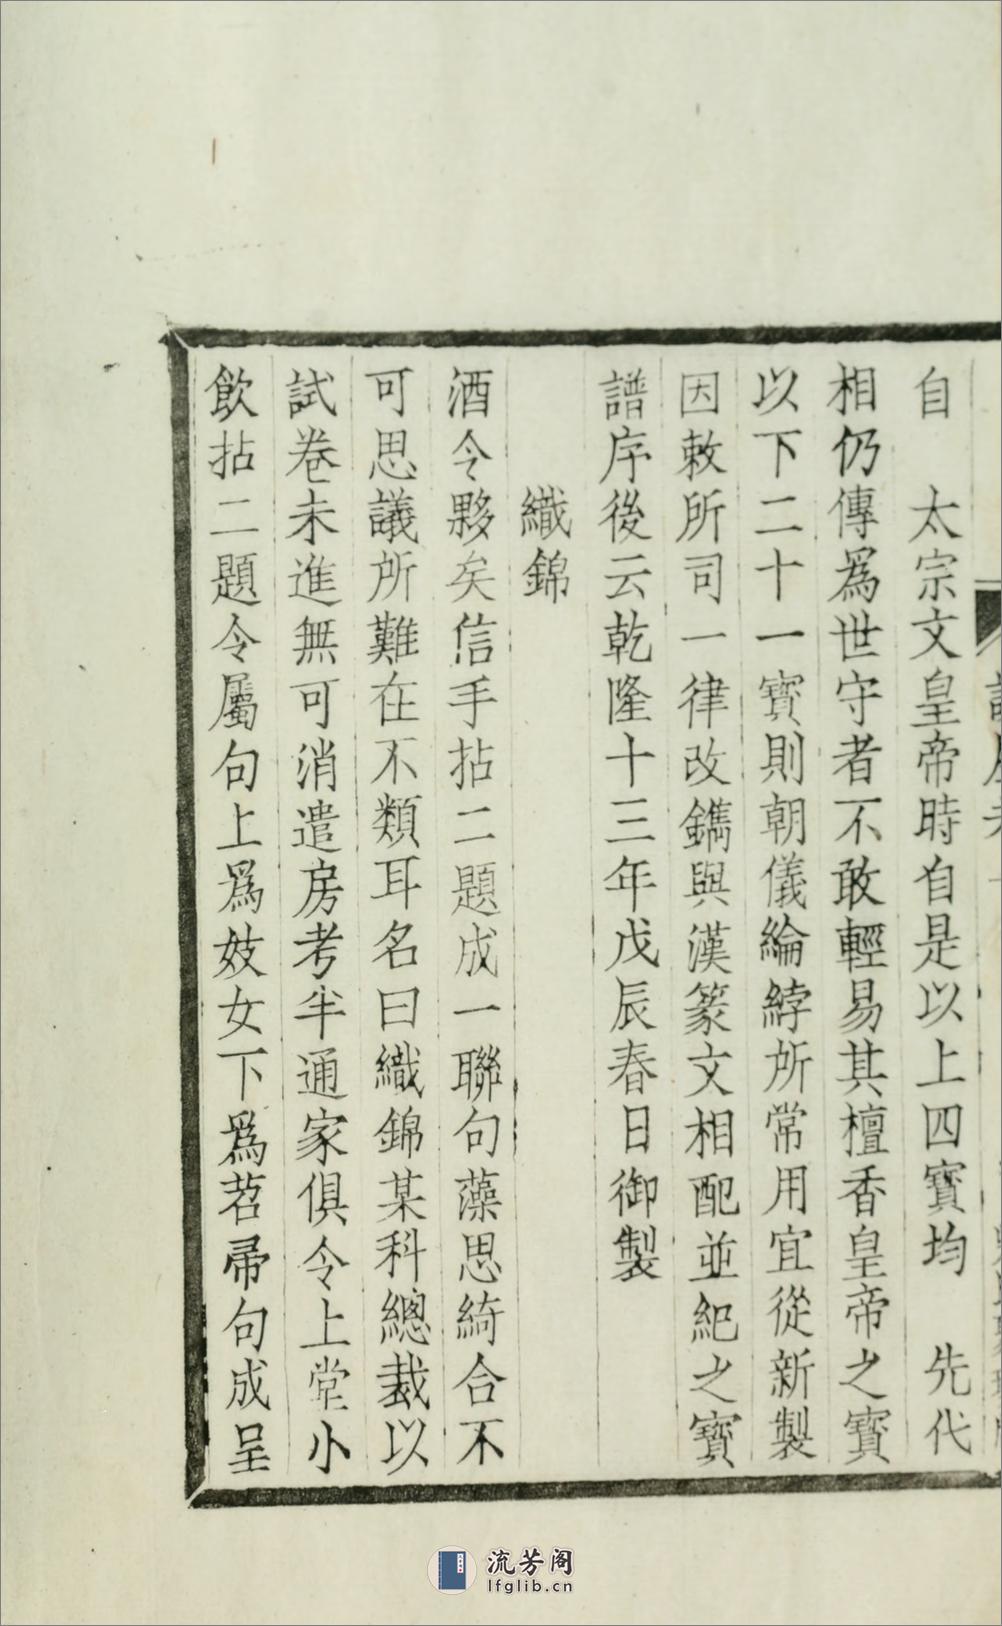 自　太宗文皇帝時自是以上四寶均　先代
相仍傳爲世守者不敢輕易其檀香皇帝之寶
以下二十一寶則朝儀綸綍所常用宜從新製
因敕所司一律改鐫與漢篆文相配並紀之寶
譜序後云乾隆十三年戊辰春日御製
織錦
酒令夥矣信手拈二題成一聯句藻思綺合不
可思議所難在不類耳名曰織錦某科總裁以
試卷未進無可消遣房考半通家俱令上堂小
飲拈二題令屬句上爲妓女下爲苕帚句成呈
流芳阁
lfglib.cn